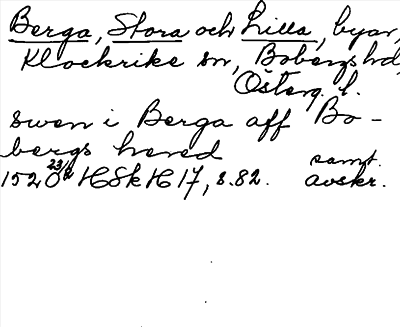 Berga, Stora och Lilla, byar,
Klockrike sn, Bobergs hd,
Österg. l.
swen i Berga aff Bo-
bergs hered
samt.
1520 23/12 HSkH 17, s. 82. avskr.